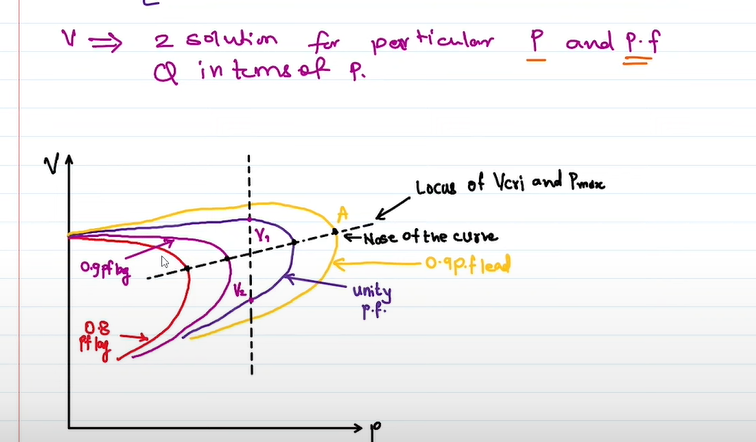 V ⇒ 2 solution for perticular P and p.f
Q in tems of P.
V
Locus of Vcri and Pmax
A
V1
Nose of the curve
0.9pf lag
0.9p.f lead
V2
unity
p.f.
0.8
pf lag
P